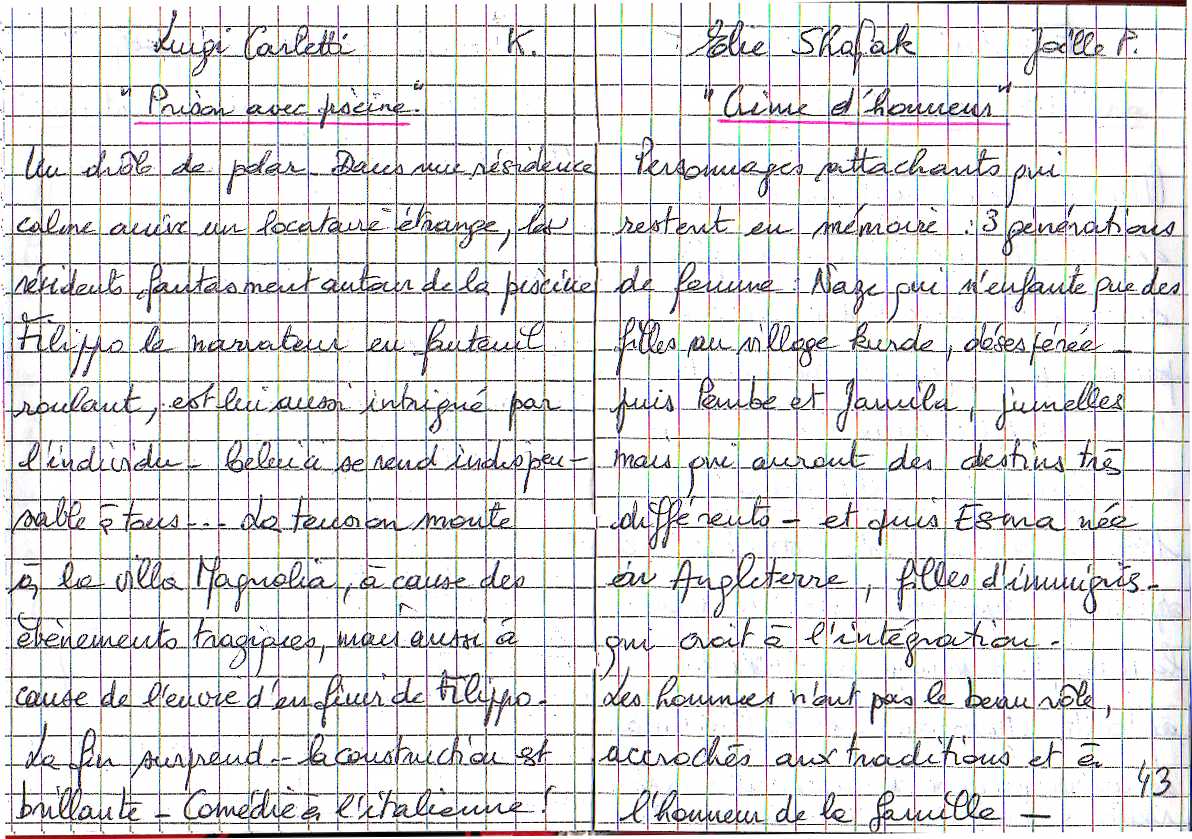 Luigi Carletti K.
"Prison avec piscine."
Un drôle de polar. Dans une résidence
calme arrive un locataire étrange, les
résidents fantasment autour de la piscine
Filippo le narrateur en fauteuil
roulant, est lui aussi intrigué par
l'individu - se rend indispen-
sable à tous --- La tension monte
à la villa Magnolia, à cause des
évènements tragiques, mais aussi à
cause de l'envie d'en finir de Filippo.
La fin surprend - la construction est
brillante - Comédie à l'italienne !
Elie Shafak Joëlle P.
"Crime d'honneur"
Personnages attachants qui
restent en mémoire : 3 générations
de femme : Naze qui n'enfante que des
filles au village kurde, désespérée -
puis Pembe et Jamila, jumelles
mais qui auront des destins très
différents - et puis Esma née
en Angleterre, filles d'immigrés -
qui croit à l'intégration -
Les hommes n'ont pas le beau rôle,
accrochés aux traditions et à
l'honneur de la famille -
43